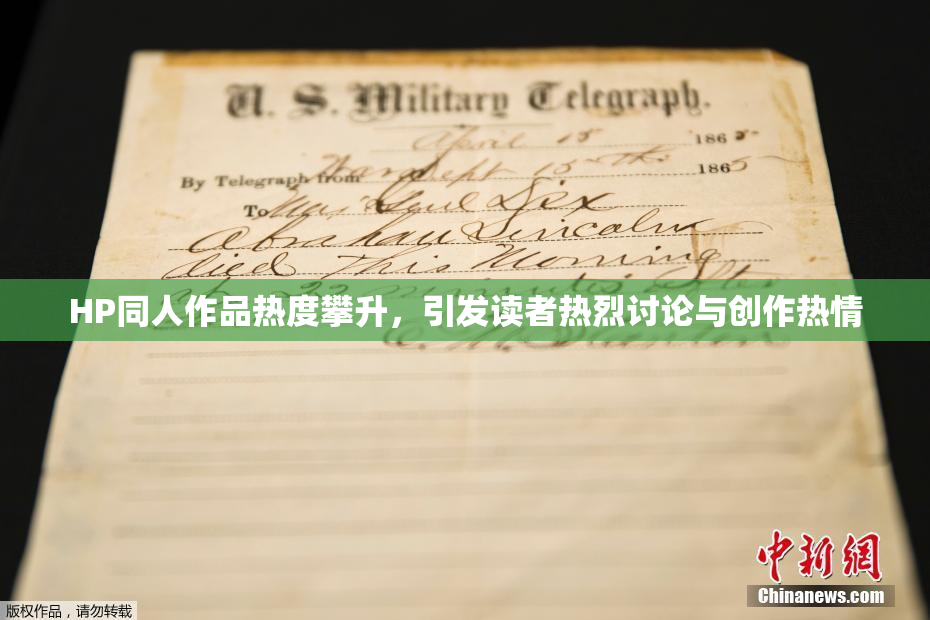 U. S. Military Telegraph.
April 15 1865
By Telegraph from War Dept 15th 1865
To Maj Genl Dix
Abraham Lincoln
died This Morning
22 minutes after
HP同人作品热度攀升，引发读者热烈讨论与创作热情
中新网
Chinanews.com
版权作品，请勿转载